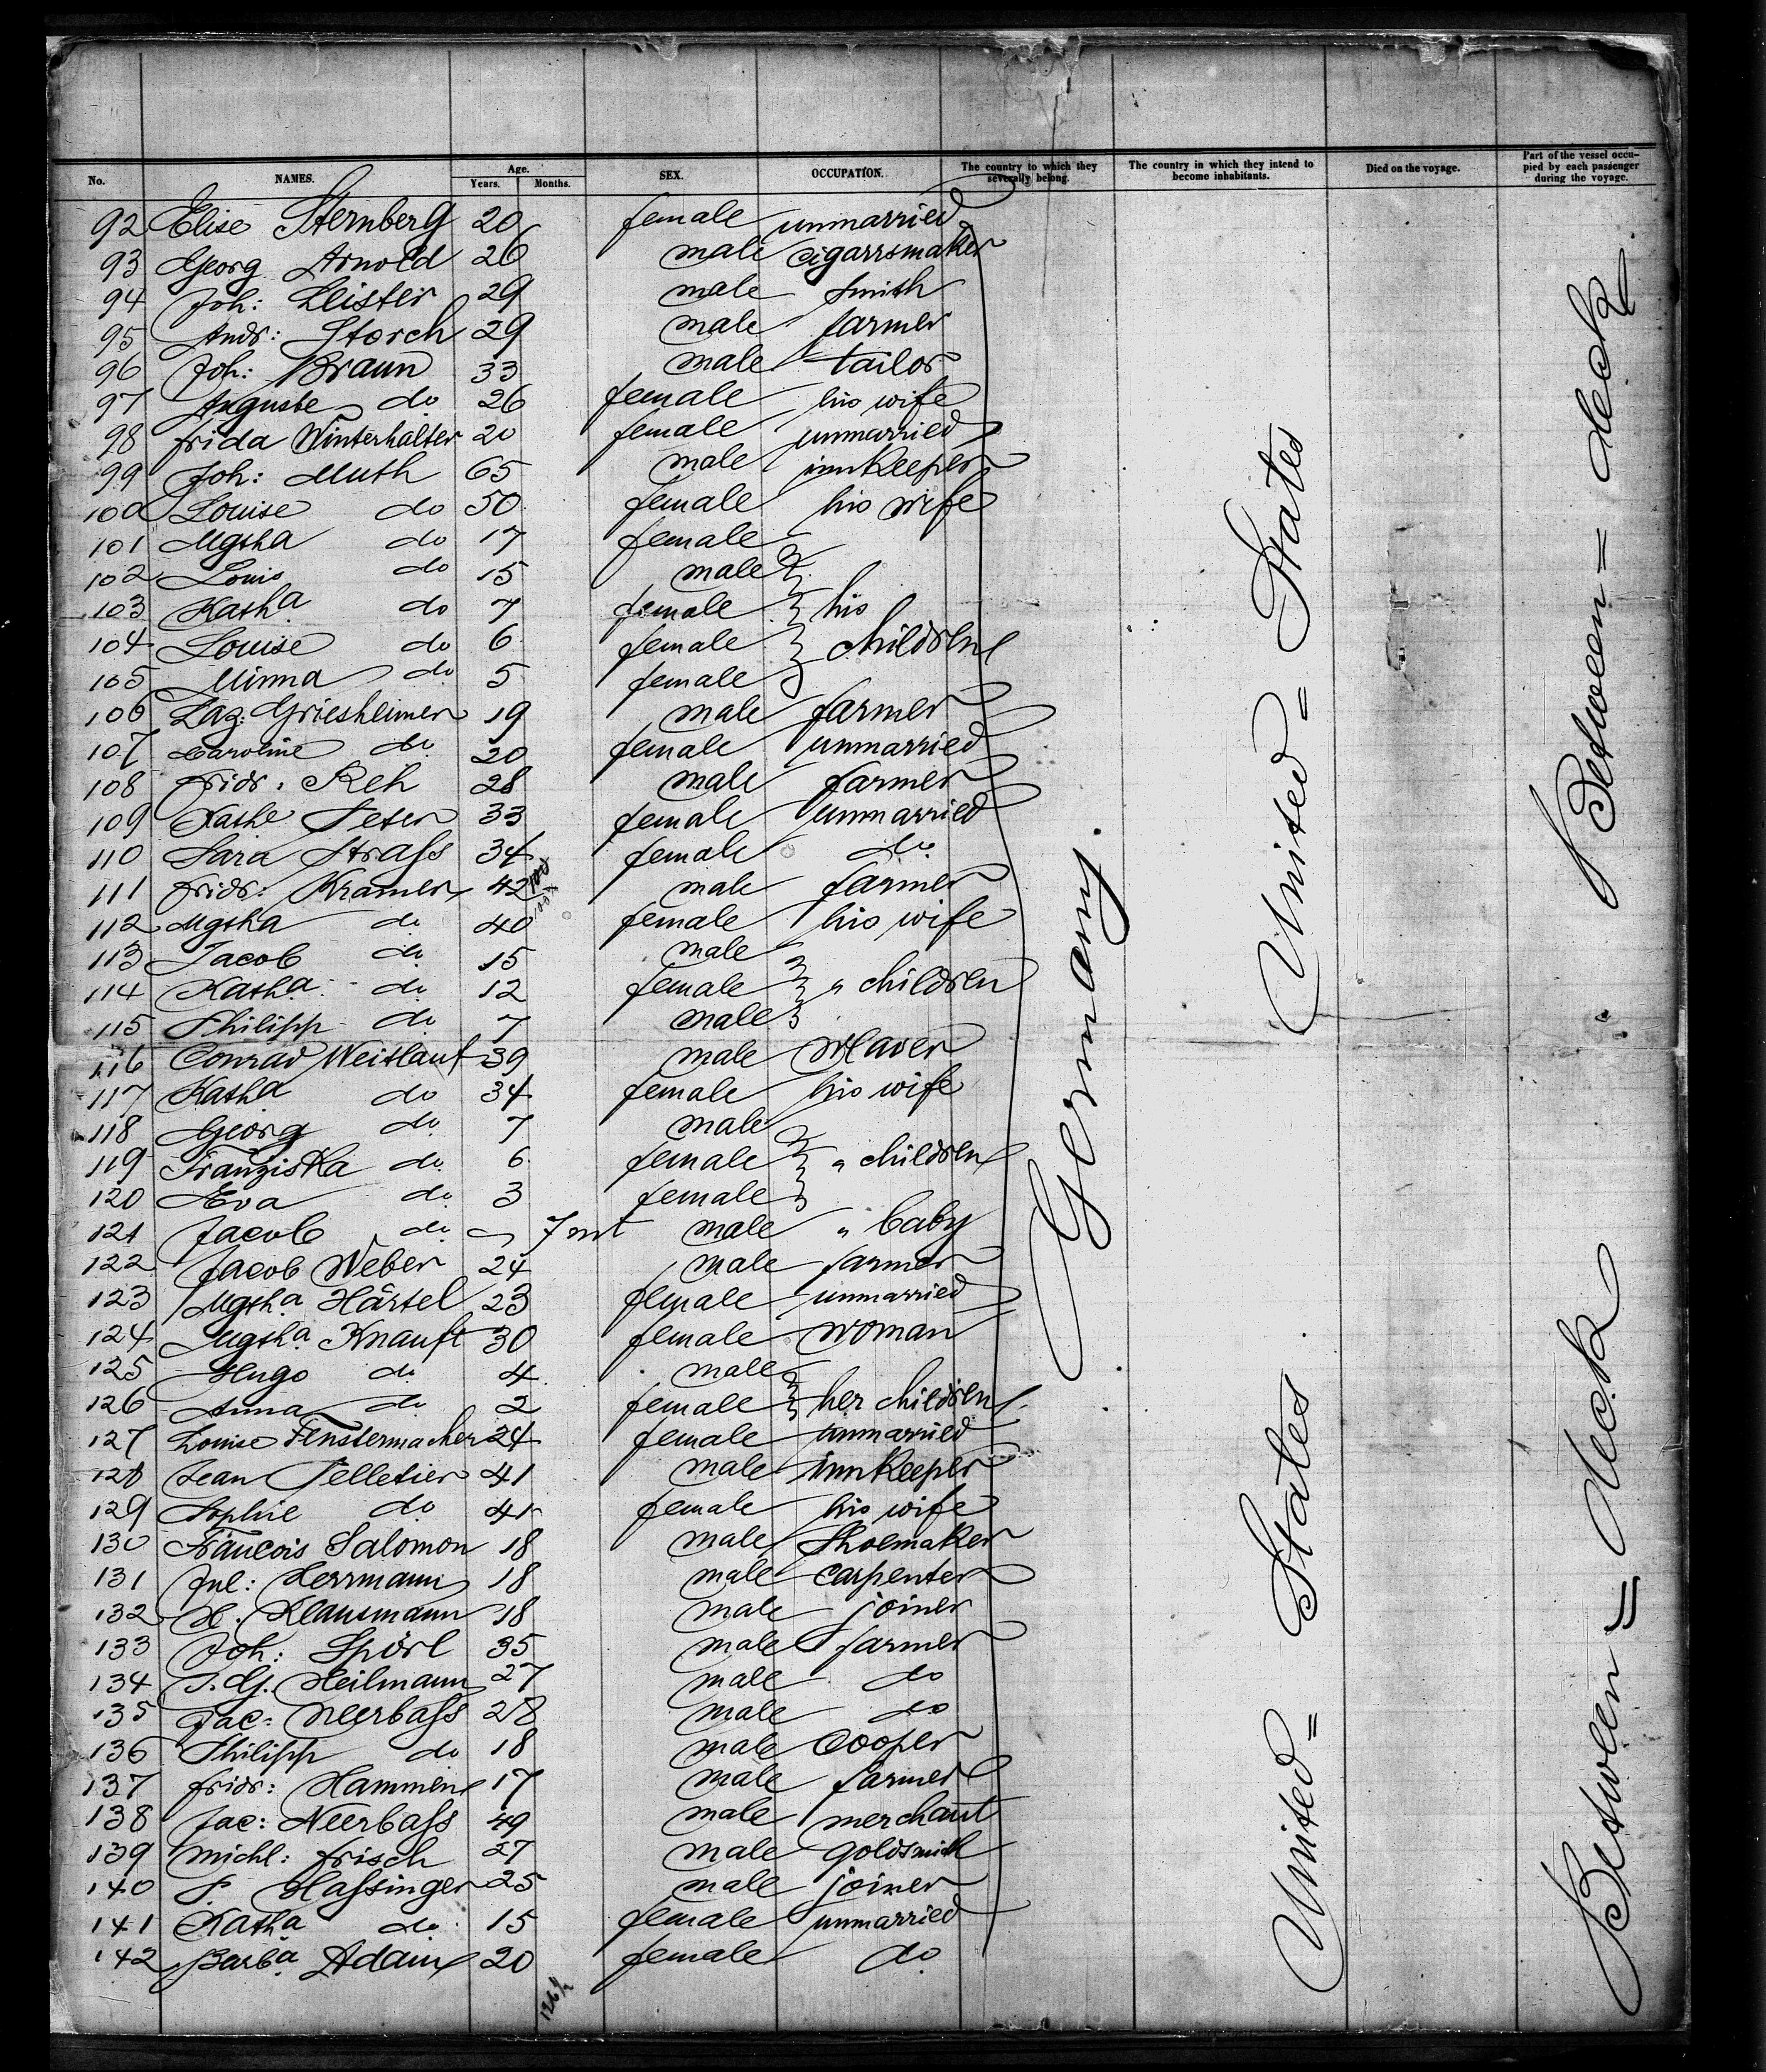 No. NAMES. Age. Years. Months. SEX. OCCUPATION. The country to which they severally belong. The country in which they intend to become inhabitants. Died on the voyage. Part of the vessel occupied by each passenger during the voyage.
92 Elise Sternberg 20 female unmarried
93 Georg Arnold 26 male cigarrsmaker
94 Joh: Leister 29 male smith
95 Andr: Storch 29 male farmer
96 Joh: Braun 33 male tailor
97 Auguste do 26 female his wife
98 Frida Winterhalter 20 female unmarried
99 Joh: Muth 65 male innkeeper
100 Louise do 50 female his wife
101 Mgtha do 17 female
102 Louis do 15 male
103 Katha do 7 female his
104 Louise do 6 female children
105 Minna do 5 female
106 Laz: Griesheimer 19 male farmer
107 Caroline do 20 female unmarried
108 Fridr: Reh 28 male farmer
109 Kathe Peter 33 female unmarried
110 Sara Strass 34 female do
111 Fridr: Kramer 42 male farmer
112 Mgtha do 40 female his wife
113 Jacob do 15 male
114 Katha do 12 female " children
115 Philipp do 7 male
116 Conrad Weitlauf 39 male weaver
117 Katha do 34 female his wife
118 Georg do 7 male
119 Franziska do 6 female " children
120 Eva do 3 female
121 Jacob do 7 mt male " baby
122 Jacob Weber 24 male farmer
123 Mgtha Härtel 23 female unmarried
124 Mgtha Knauft 30 female woman
125 Hugo do 4 male
126 Anna do 2 female her children
127 Louise Fenstermacher 24 female unmarried
128 Jean Pelletier 41 male innkeeper
129 Sophie do 41 female his wife
130 Francois Salomon 18 male shoemaker
131 Jul: Herrmann 18 male carpenter
132 H. Klausmann 18 male joiner
133 Joh: Spörl 35 male farmer
134 J. G. Heilmann 27 male do
135 Jac: Neerbass 28 male do
136 Philipp do 18 male cooper
137 Fridr: Hammen 17 male farmer
138 Jac: Neerbass 49 male merchant
139 Michl: Frisch 27 male goldsmith
140 P. Hassinger 25 male joiner
141 Katha do 15 female unmarried
142 Barba Adam 20 female do
Germany.
United= States
United= States.
Between= deck.
Between= deck